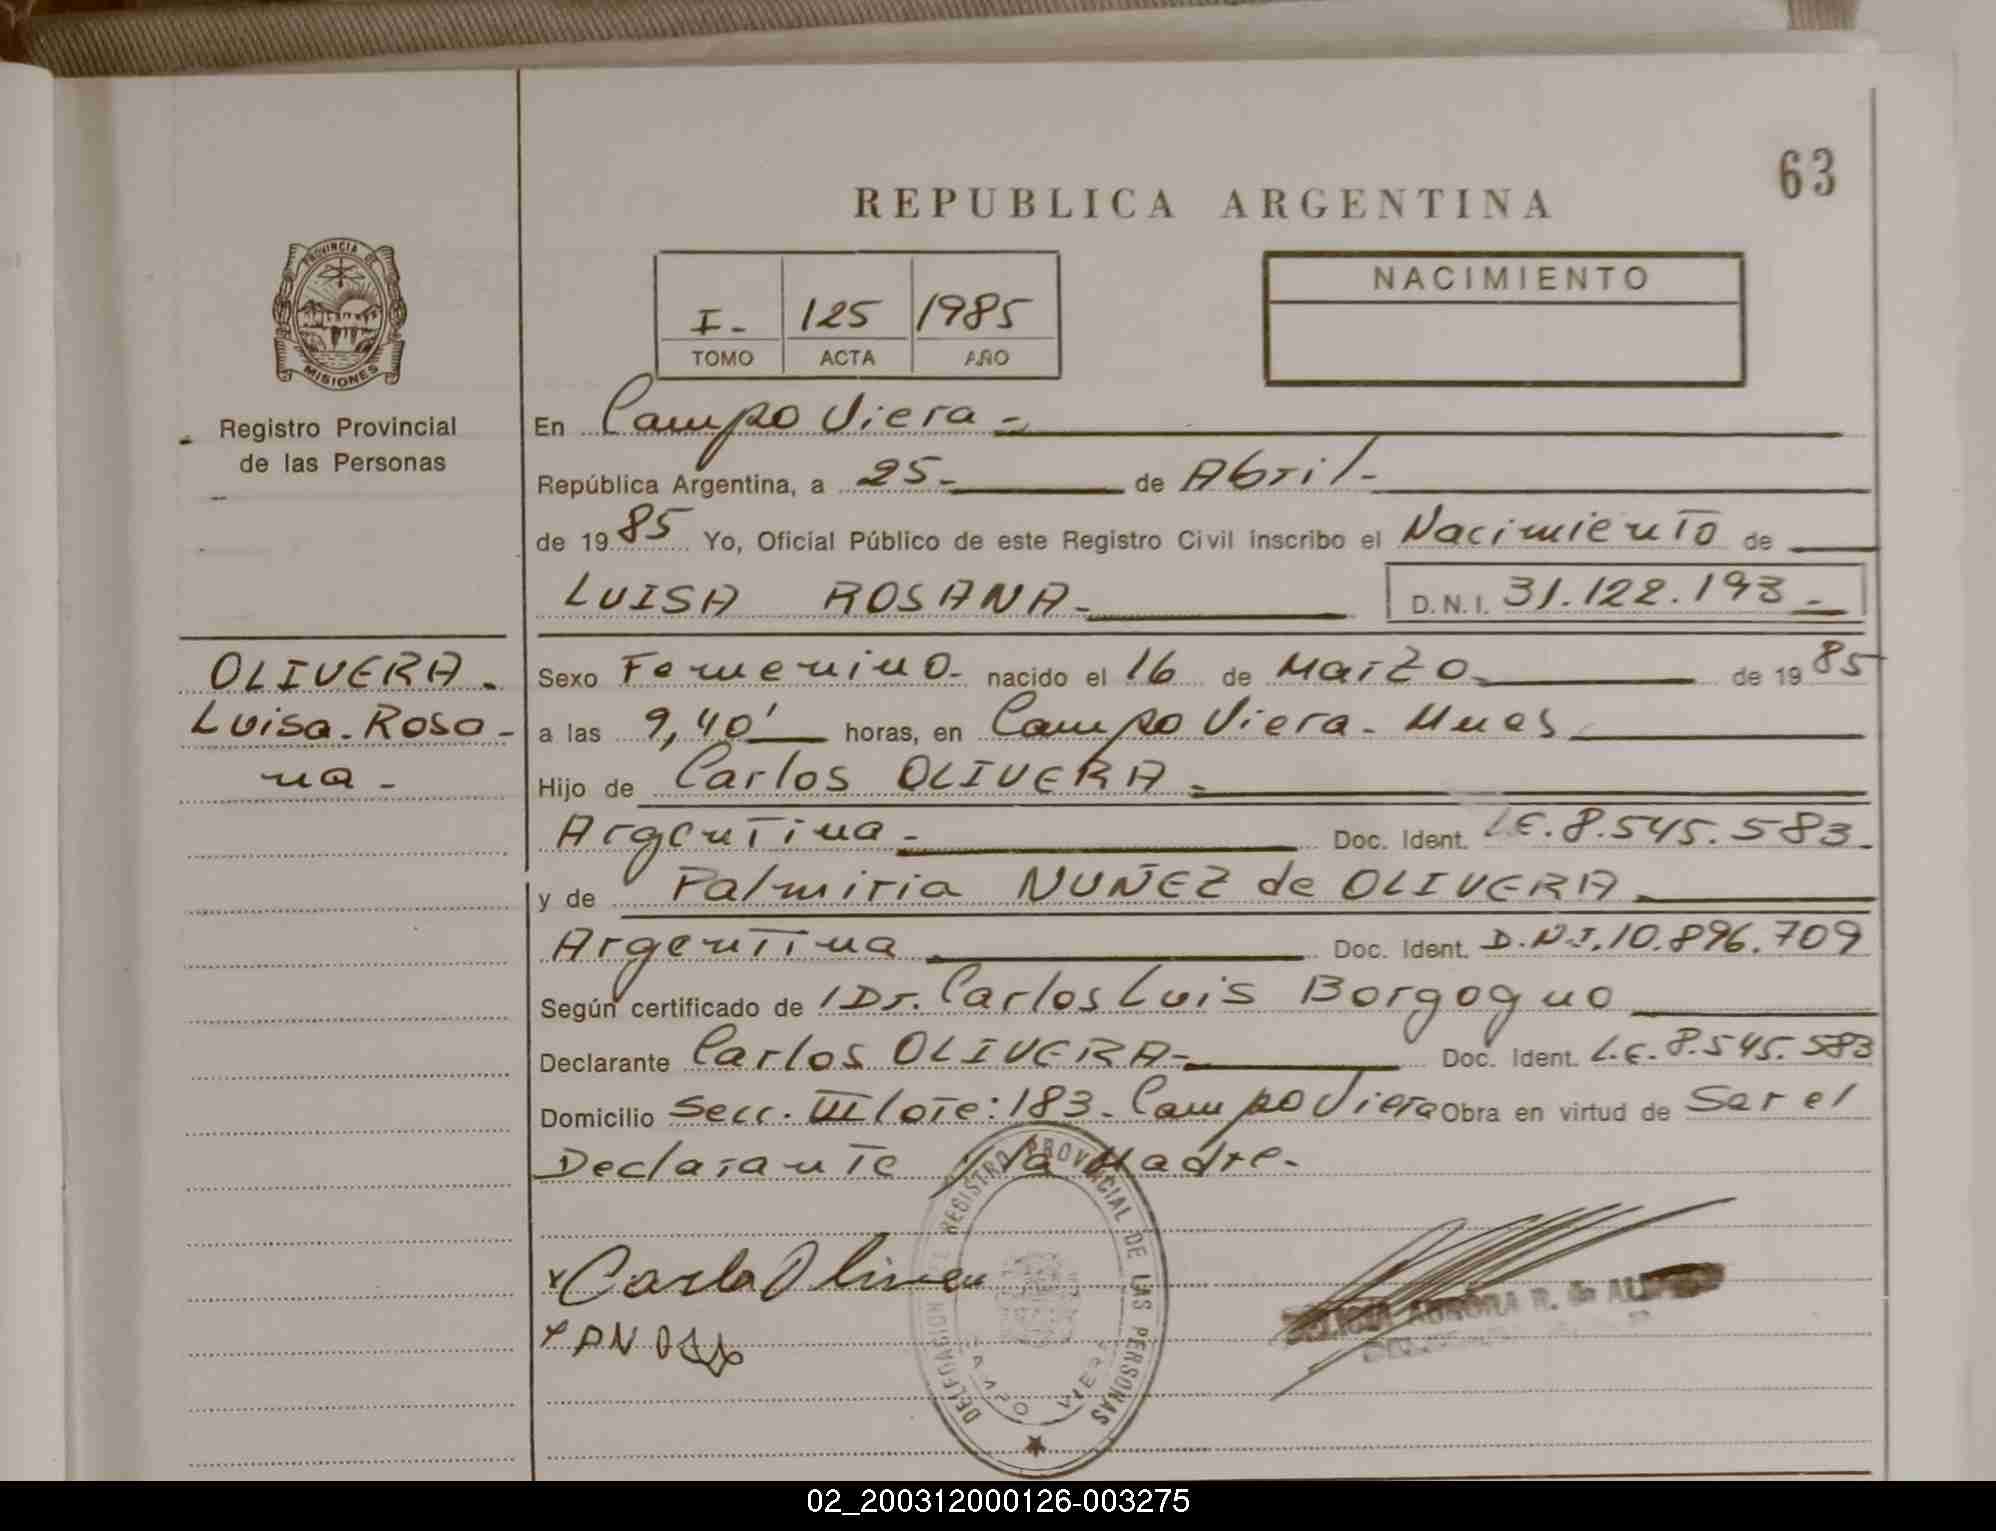 63
REPUBLICA ARGENTINA
PROVINCIA DE
MISIONES
Registro Provincial
de las Personas
I- 125 1985
TOMO ACTA AÑO
NACIMIENTO
En Campo Viera -
República Argentina, a 25- de Abril-
de 1985 Yo, Oficial Público de este Registro Civil inscribo el Nacimiento de
LUISA ROSANA- D.N.I. 31.122.193-
OLIVERA-
Luisa-Rosa-
na-
Sexo Femenino- nacido el 16 de Marzo- de 1985
a las 9,40' horas, en Campo Viera- Mnes
Hijo de Carlos OLIVERA-
Argentina- Doc. Ident. L.E. 8.545.583-
y de Palmiria NUÑEZ de OLIVERA-
Argentina Doc. Ident. D.N.I. 10.896.709
Según certificado de /Dr. Carlos Luis Borgogno
Declarante Carlos OLIVERA- Doc. Ident. L.E. 8.545.583
Domicilio Secc. III lote: 183- Campo Viera Obra en virtud de Ser el
Declarante y la Madre-
REGISTRO PROVINCIAL DE LAS PERSONAS
DELEGACION
CAMPO VIERA
x Carlos Olivera
DELICIA AURORA R. de
02_200312000126-003275